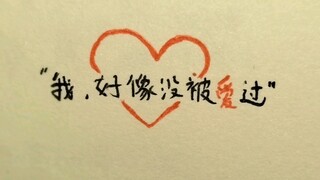 “我,好像没被愛过”